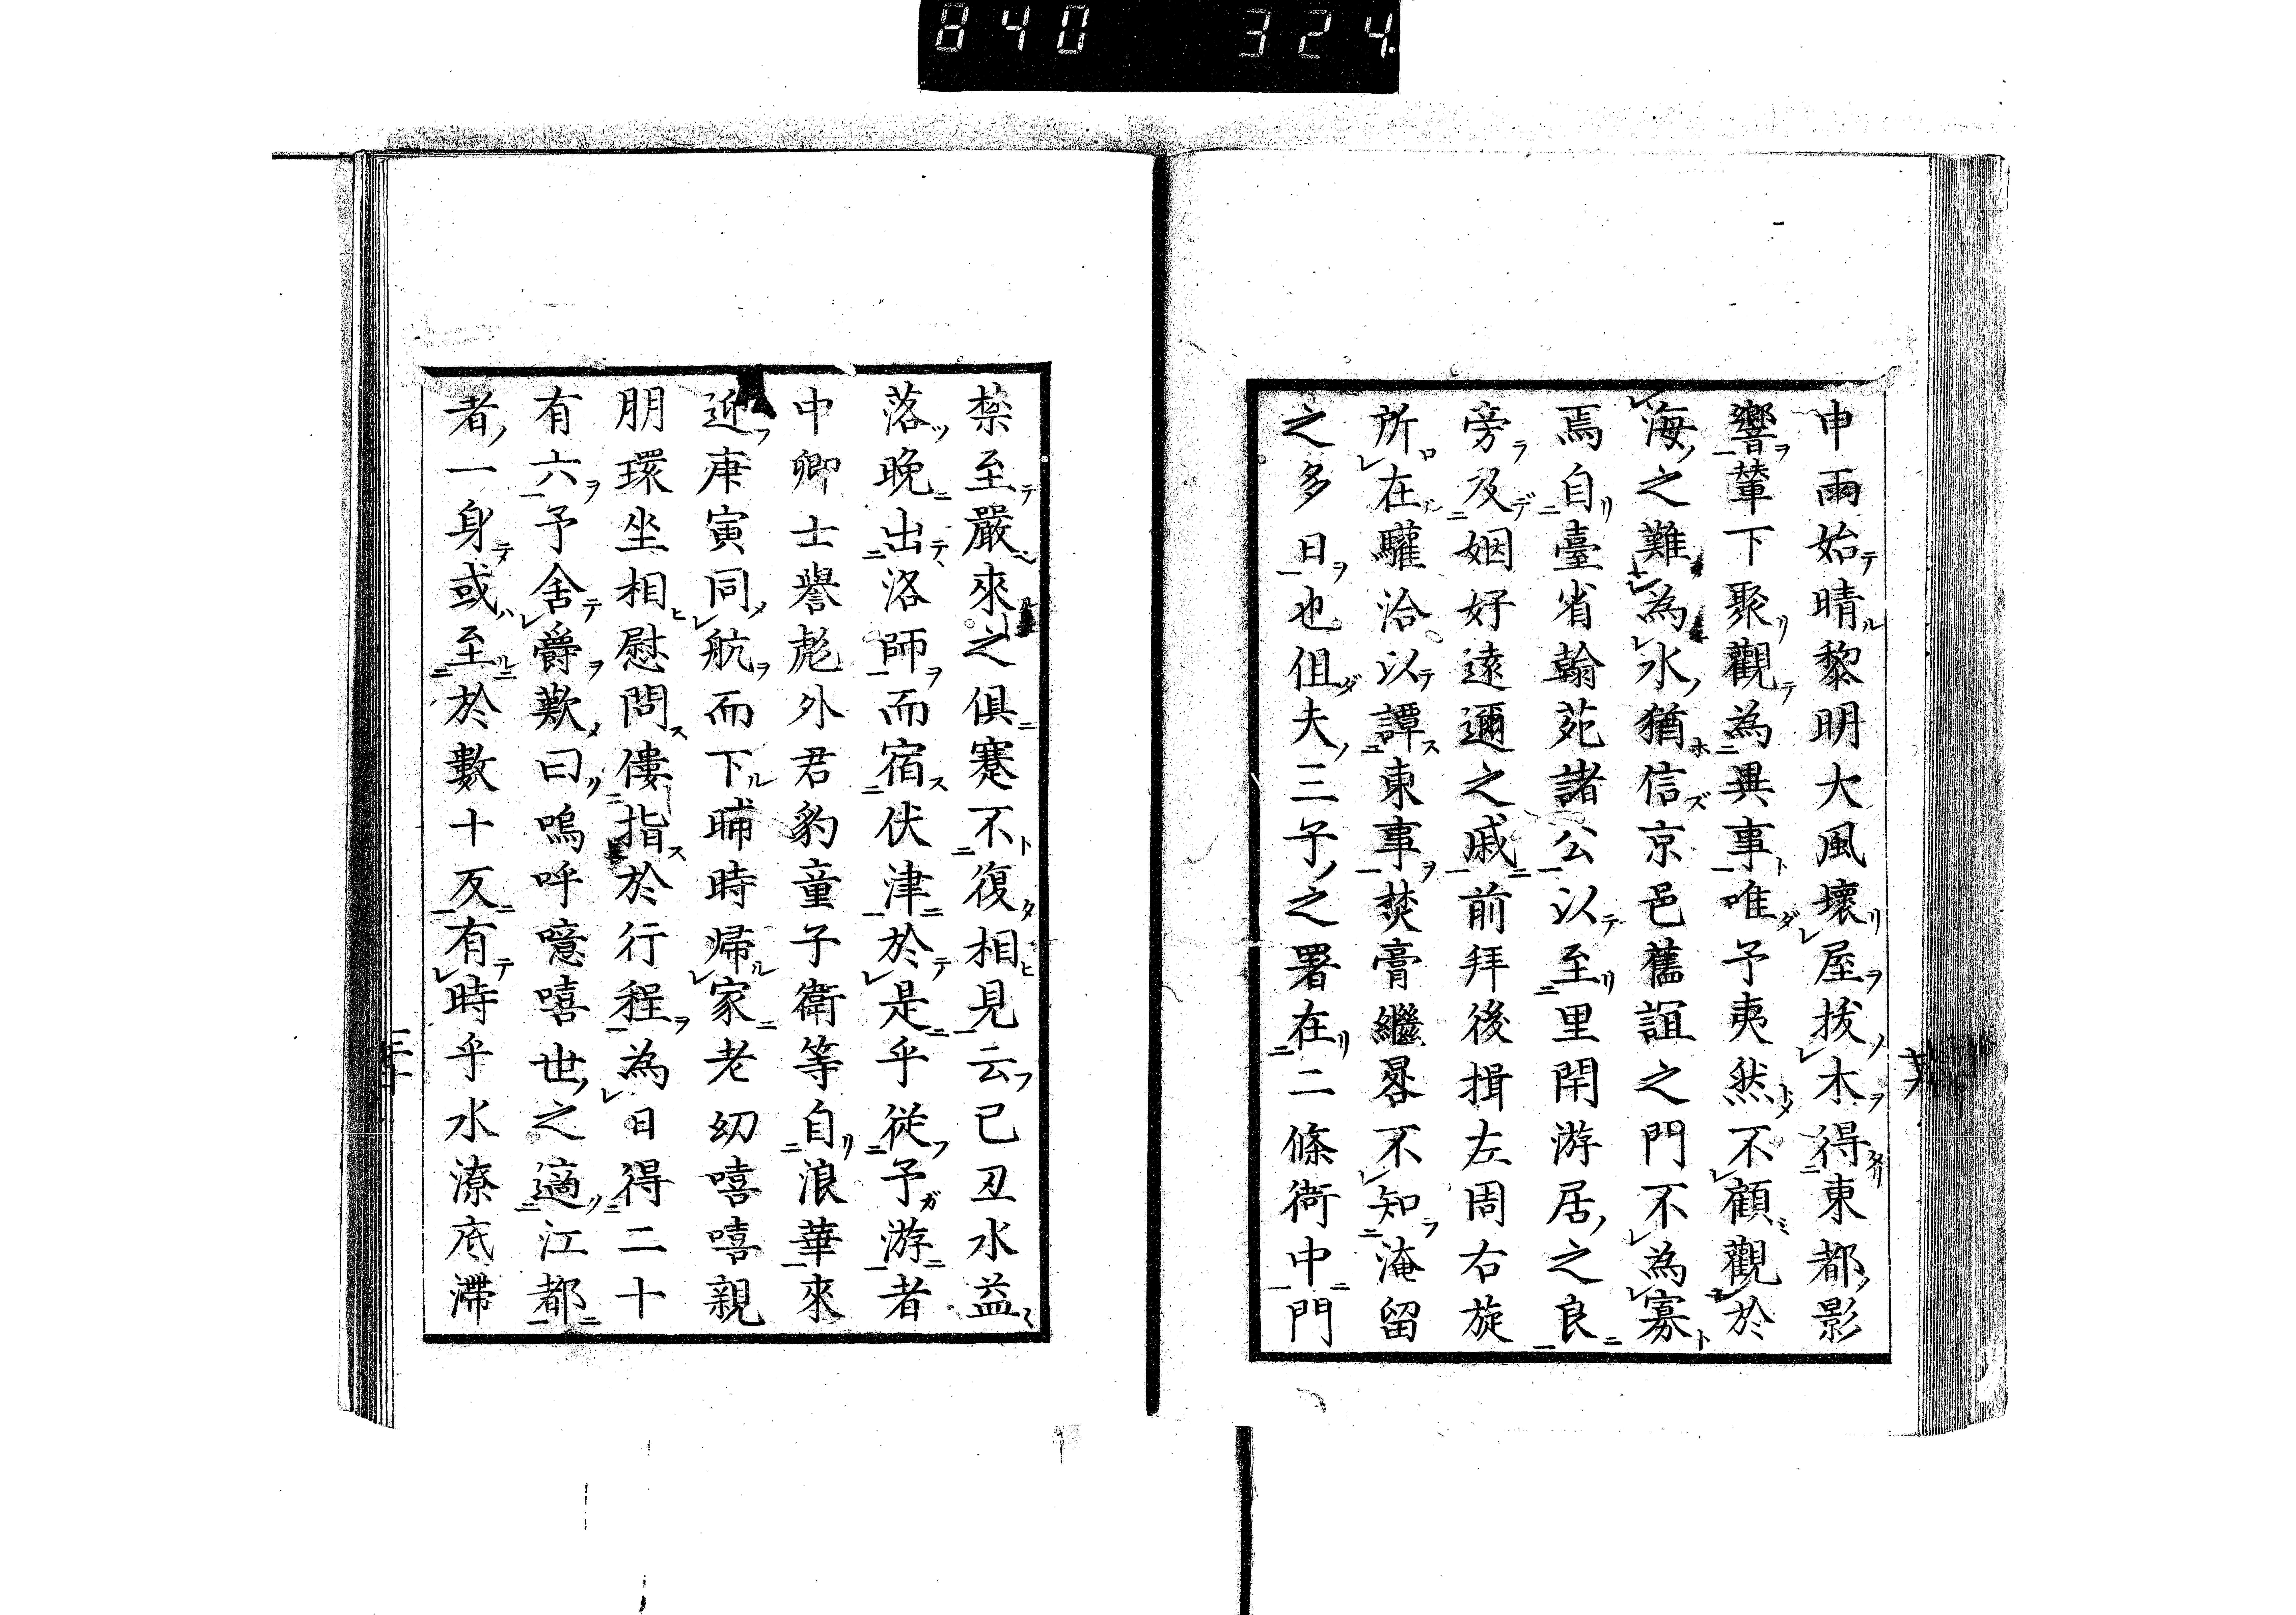 840 324.
申雨始晴黎明大風壞屋拔木得東都影
響輦下聚觀為異事唯予夷然不顧觀於
海之難為水猶信京邑舊誼之門不為寡
焉自臺省翰苑諸公以至里閈游居之良
旁及姻好遠邇之戚前拜後揖左周右旋
所在驩洽以譚東事焚膏繼晷不知淹留
之多日也伹夫三子之署在二條衙中門
禁至嚴來之俱蹇不復相見云己丑水益
落晚出洛師而宿伏津於是乎從予游者
中卿士譽彪外君豹童子衛等自浪華來
迎庚寅同航而下晡時歸家老幼嘻嘻親
朋環坐相慰問僂指於行程為日得二十
有六予舍爵歎曰嗚呼噫嘻世之適江都
者一身或至於數十反有時乎水潦底滯